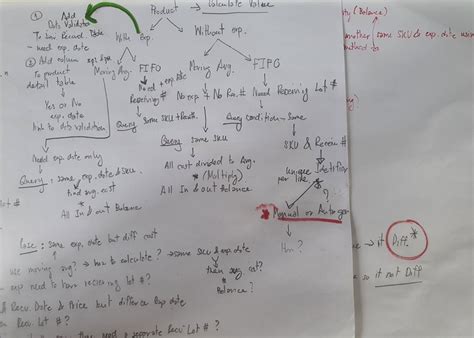 Product → Calculate Value
① Add
Data Validation
To Rem Record. Date
- need exp. date
② Add column exp. type
To product
detail table
Yes or No
exp. date
link to data validation
With Exp.
Without exp.
Moving Avg.
FIFO
Need + exp. date
Receiving #
Query: same SKU +
Need exp. date only
Query: same, exp. date & sku
Find avg. cost
All In & out Balance
Moving Avg.
FIFO
No exp + No Rec. #
Query: same sku
All cost divided to Avg.
* (Multiply)
All In & out Balance
Need Receiving Lot #
Query Condition - Same
SKU & Receiv #
unique Identifier
per line
?
* Manual or Autogen
How?
Case: same exp. date but diff cost
use moving avg? → how to calculate? → same sku & exp. date
then avg cost?
* Balance?
exp need to have receiving lot #?
& Recv. Date & Price but difference Exp date
Recv Lot #?
need a separate Recv Lot #?
ty (Balance)
another same SKU & exp. date
method to
→ it Diff. *
so it not Diff